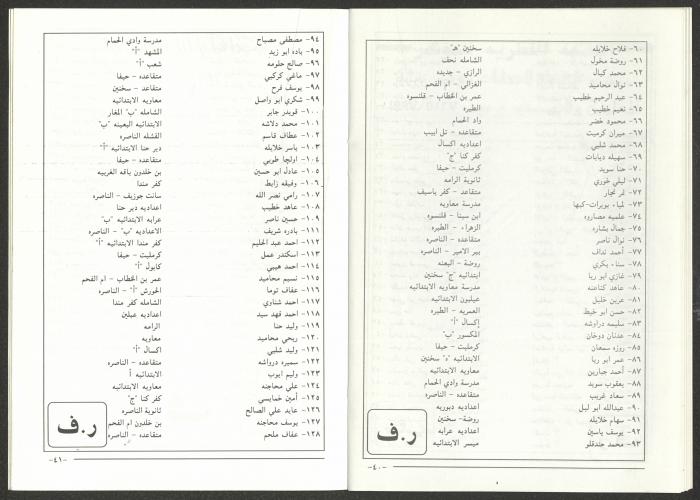 ٦٠- فلاح خلايله سخنين "هـ"
٦١- روضة مخول الشامله نحف
٦٢- محمد كيال الرازي - جديده
٦٣- نوال محاميد الغزالي - ام الفحم
٦٤- عبد الرحيم خطيب عمر بن الخطاب - قلنسوه
٦٥- نعيم خطيب الطيره
٦٦- محمود خضر واد الحمام
٦٧- ميران كرميت متقاعده - تل ابيب
٦٨- محمد شلبي اعداديه اكسال
٦٩- سهيله ذيابات كفر كنا "ج"
٧٠- حنا سويد كرمليت - حيفا
٧١- ليلى خوري ثانوية الرامه
٧٢- تمر نجار متقاعد - كفر ياسيف
٧٣- لمياء بويرات-كيها مدرسة معاويه
٧٤- علميه مصاروه ابن سينا - قلنسوه
٧٥- جمال بشاره الزهراء - الطيره
٧٦- نوال ناصر متقاعده - الناصره
٧٧- أحمد نداف بير الامير - الناصره
٧٨- سناء بكري روضة - البعنه
٧٩- غازي ابو ريا ابتدائيه "ج" سخنين
٨٠- عاهد كناعنه مدرسة معاويه الابتدائيه
٨١- عرين خليل عبلبون الابتدائيه
٨٢- حسن ابو خيط العمريه - الطيره
٨٣- سليمه دراوشه إكسال "أ"
٨٤- عدنان دوخان المكسور "ب"
٨٥- روزه سمعان كرمليت - حيفا
٨٦- عمر ابو ريا الابتدائيه "ه" سخنين
٨٧- أحمد جبارين معاويه الابتدائيه
٨٨- يعقوب سويد مدرسة وادي الحمام
٨٩- سعاد غريب متقاعده - الناصره
٩٠- عبدالله ابو لبل اعداديه دبوريه
٩١- سهام خلايله روضة- سخنين
٩٢- يوسف ياسين اعداديه عرابه
٩٣- محمد جندقلو ميسر الابتدائيه
ر.ف
-٤٠-
٩٤- مصطفى مصباح مدرسة وادي الحمام
٩٥- باده ابو زيد المشهد "أ"
٩٦- صالح حلومه شعب "أ"
٩٧- ماغي كركبي متقاعده - حيفا
٩٨- يوسف فرح متقاعد - سخنين
٩٩- شكري ابو واصل معاويه الابتدائيه
١٠٠- قويدر جابر الشامله "ب" المغار
١٠١- محمد دلاشه الابتدائيه البعينه "ب"
١٠٢- عطاف قاسم القشله الناصره
١٠٣- ياسر خلايله دير حنا الابتدائيه "أ"
١٠٤- اولجا طوبي متقاعده - حيفا
١٠٥- عادل ابو حسين بن خلدون باقه الغربيه
١٠٦- وفيقه زابط كفر مندا
١٠٧- رامي نصر الله سانت جوزيف - الناصره
١٠٨- عاهد خطيب اعداديه دير حنا
١٠٩- حسين ناصر عرابه الابتدائيه "ب"
١١١- بادره شريف الاعداديه "ب" - الناصره
١١٢- احمد عبد الحليم كفر مندا الابتدائيه "أ"
١١٣- اسكندر عمل اعداديه - الناصره
١١٤- احمد هيبي كابول "أ"
١١٥- نسيم محاميد عمر بن الخطاب - ام الفحم
١١٦- عفاف توما الحورش "أ" - الناصره
١١٧- احمد شناوي الشامله كفر مندا
١١٨- احمد فهد سيد اعداديه عبلين
١١٩- وليد حنا الرامه
١٢٠- ربحي محاميد معاويه
١٢١- وليد شلبي اكسال "أ"
١٢٢- سميره درواشه متقاعده - الناصره
١٢٣- وليم ايوب الابتدائيه أ
١٢٤- علي محاجنه معاويه الابتدائيه
١٢٥- أمين خمايسي كفر كنا "ج"
١٢٦- عايد علي الصالح ثانوية الناصره
١٢٧- يوسف محاجنه بن خلدون ام الفحم
١٢٨- عفاف ملحم متقاعده - الناصره
ر.ف
-٤١-